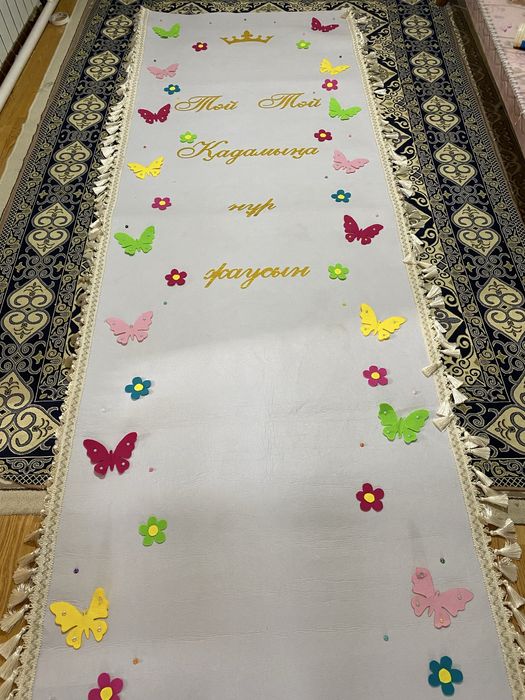 Тәй Тәй
Қадамыңа
нұр
жаусын